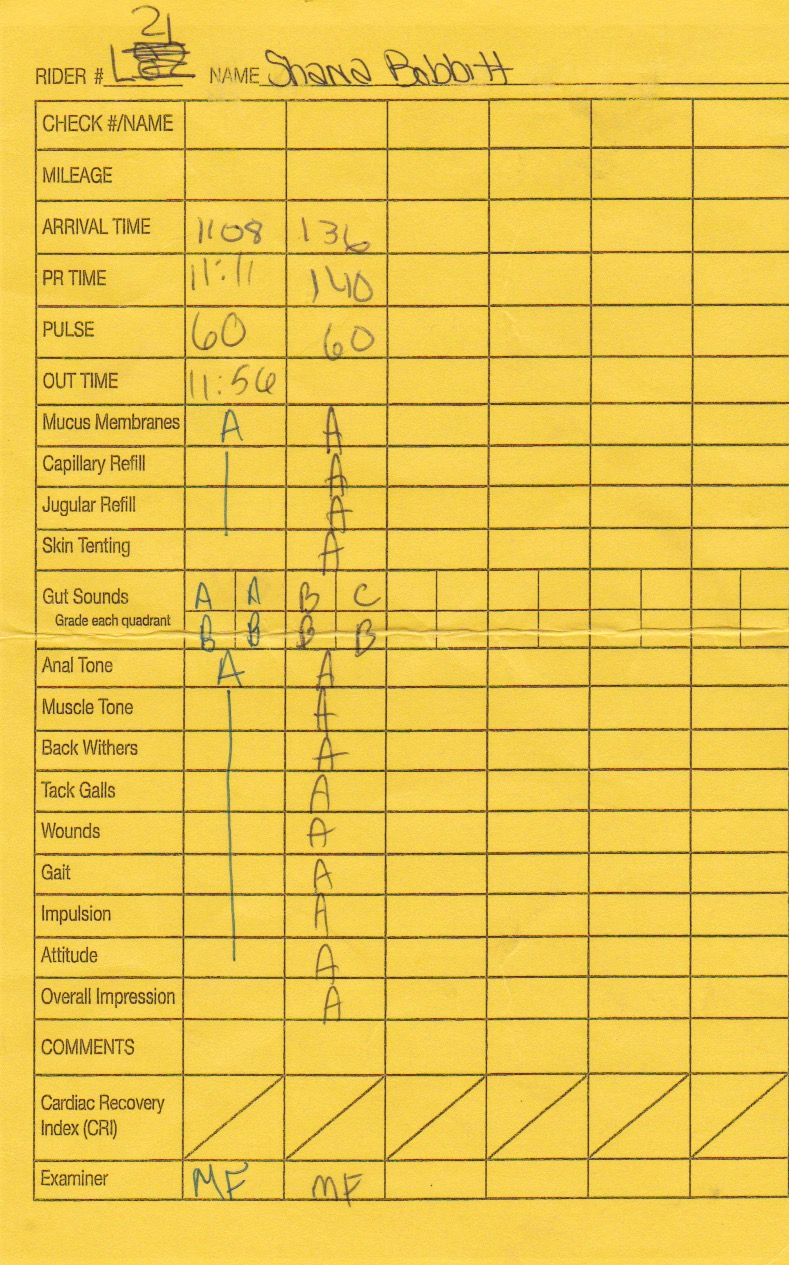 21
RIDER # L NAME Shana Babbitt
CHECK #/NAME
MILEAGE
ARRIVAL TIME 1108 136
PR TIME 11:11 140
PULSE 60 60
OUT TIME 11:56
Mucus Membranes A A
Capillary Refill A
Jugular Refill A
Skin Tenting A
Gut Sounds A A B C
Grade each quadrant B B B B
Anal Tone A A
Muscle Tone A
Back Withers A
Tack Galls A
Wounds A
Gait A
Impulsion A
Attitude A
Overall Impression A
COMMENTS
Cardiac Recovery
Index (CRI)
Examiner MF MF